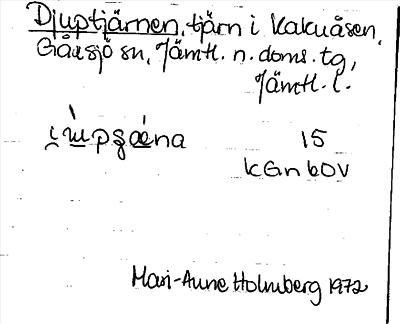 Djuptjärnen, tjärn i Kakuåsen,
Gåxsjö sn, Jämtl. n. doms. tg,
Jämtl. l.
15
kGnbOV
Mari-Anne Holmberg 1972